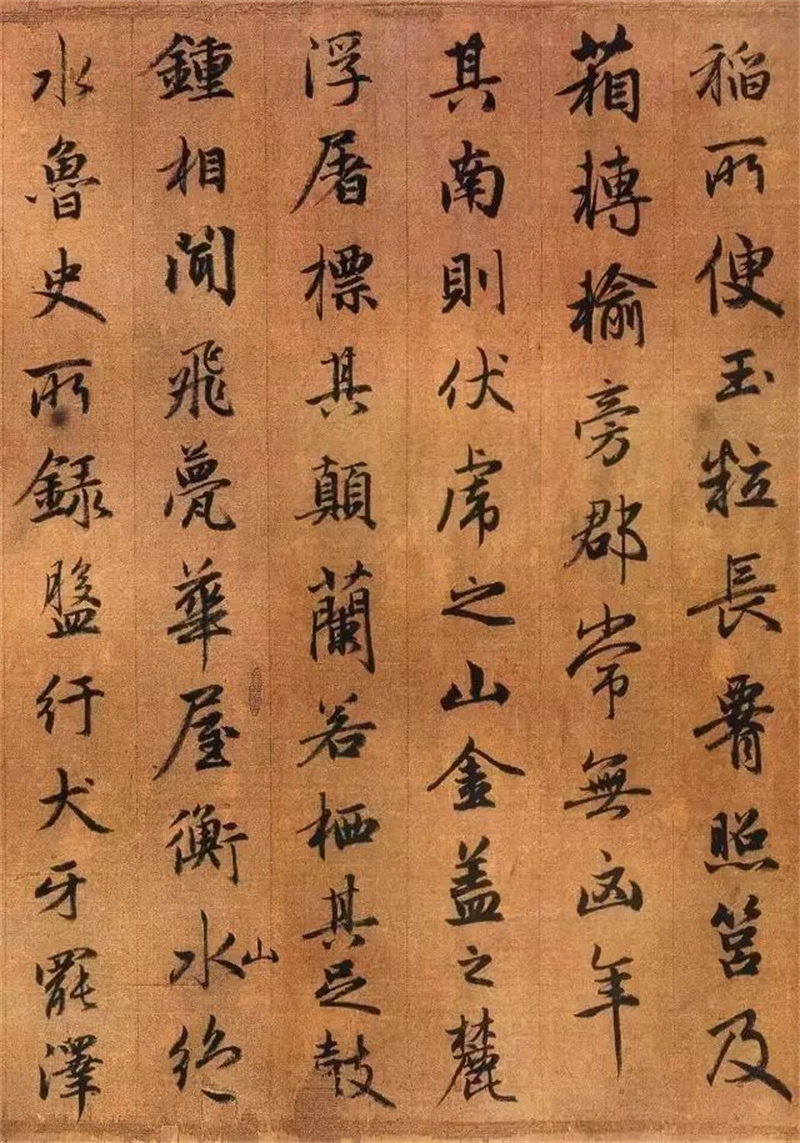 稻所便玉粒長腰照筥及
箱轉輸旁郡常無凶年
其南則伏虎之山金盖之麓
浮屠標其顛蘭若栖其足鼓
鍾相聞飛甍華屋衡水山絶
水魯史所録盤紆犬牙罷澤